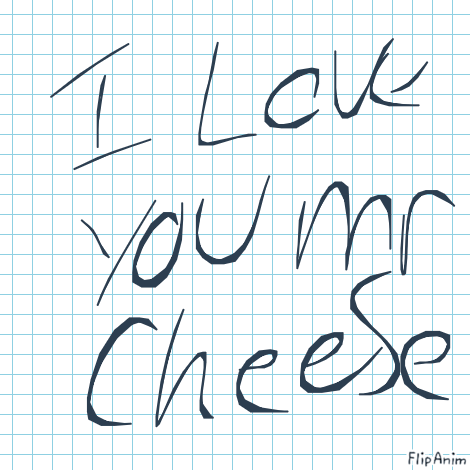 I Love
you mr
Cheese
FlipAnim